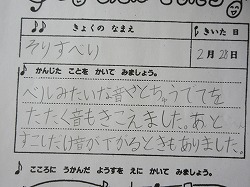 きょくの なまえ
きいた 日
そりすべり
2月28日
かんじた ことを かいて みましょう。
ベルみたいな音やとちゅうててを
たたく音もきこえました。あと
すこしだけ音が下がるときもありました。
こころに うかんだ ようすを えに かいて みましょう。